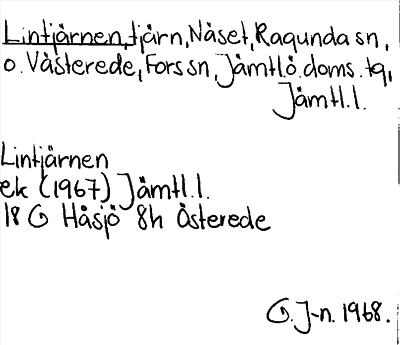 Lintjärnen, tjärn, Näset, Ragunda sn,
o. Västerede, Fors sn, Jämtl.ö. doms. tg,
Jämtl.l.
Lintjärnen
ek (1967) Jämtl.l.
18 G Håsjö 8h Österede
G. J-n. 1968.